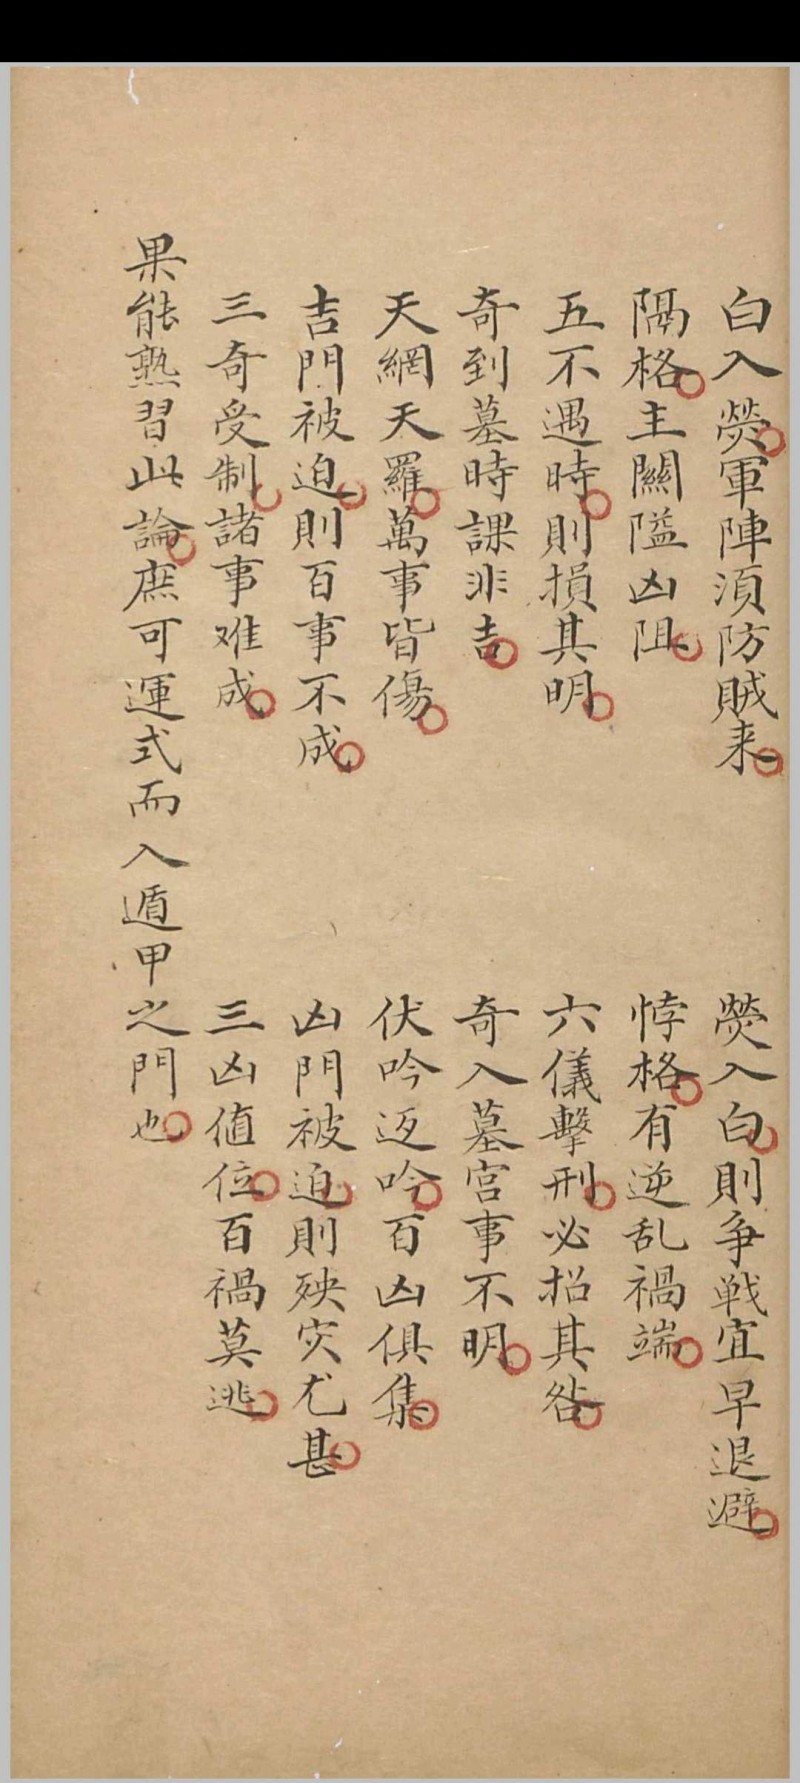 白入熒軍陣須防賊来　熒入白則争戦宜早退避
隔格主關隘凶阻　悖格有逆乱禍端
五不遇時則損其明　六儀擊刑必招其咎
奇到墓時課非吉　奇入墓宮事不明
天網天羅萬事皆傷　伏吟返吟百凶俱集
吉門被迫則百事不成　凶門被迫則殃灾尤甚
三奇受制諸事难成　三凶值位百禍莫逃
果能熟習此論庶可運式而入遁甲之門也